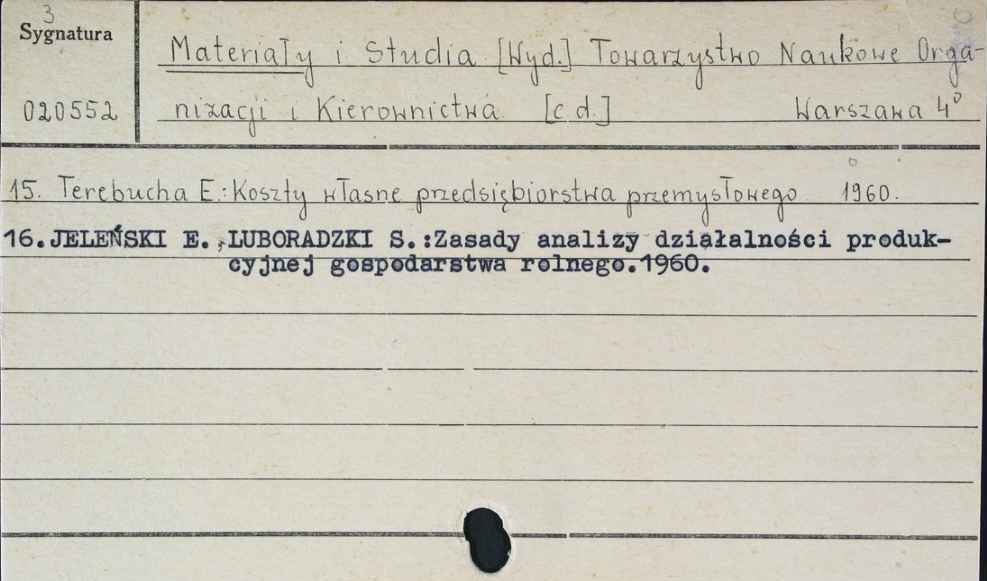 3
Sygnatura
Materiały i Studia [Wyd.] Towarzystwo Naukowe Orga-
020552 nizacji i Kierownictwa [c.d.] Warszawa 4°
15. Terebucha E.: Koszty własne przedsiębiorstwa przemysłowego 1960.
16. JELEŃSKI E., LUBORADZKI S.: Zasady analizy działalności produk-
cyjnej gospodarstwa rolnego. 1960.